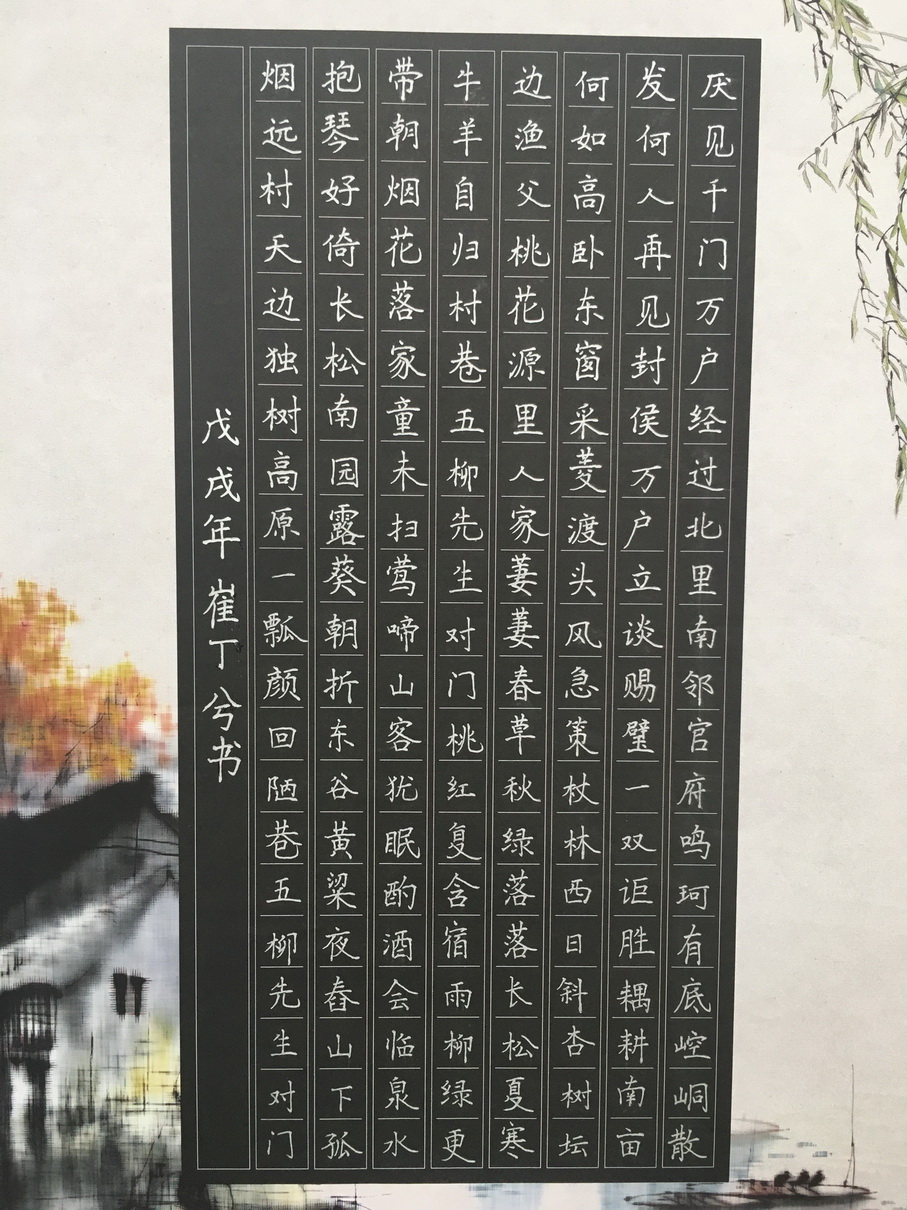 厌见千门万户经过北里南邻官府鸣珂有底崆峒散
发何人再见封侯万户立谈赐璧一双讵胜耦耕南亩
何如高卧东窗采菱渡头风急策杖林西日斜杏树坛
边渔父桃花源里人家萋萋春草秋绿落落长松夏寒
牛羊自归村巷五柳先生对门桃红复含宿雨柳绿更
带朝烟花落家童未扫莺啼山客犹眠酌酒会临泉水
抱琴好倚长松南园露葵朝折东谷黄粱夜舂山下孤
烟远村天边独树高原一瓢颜回陋巷五柳先生对门
戊戌年崔丁兮书